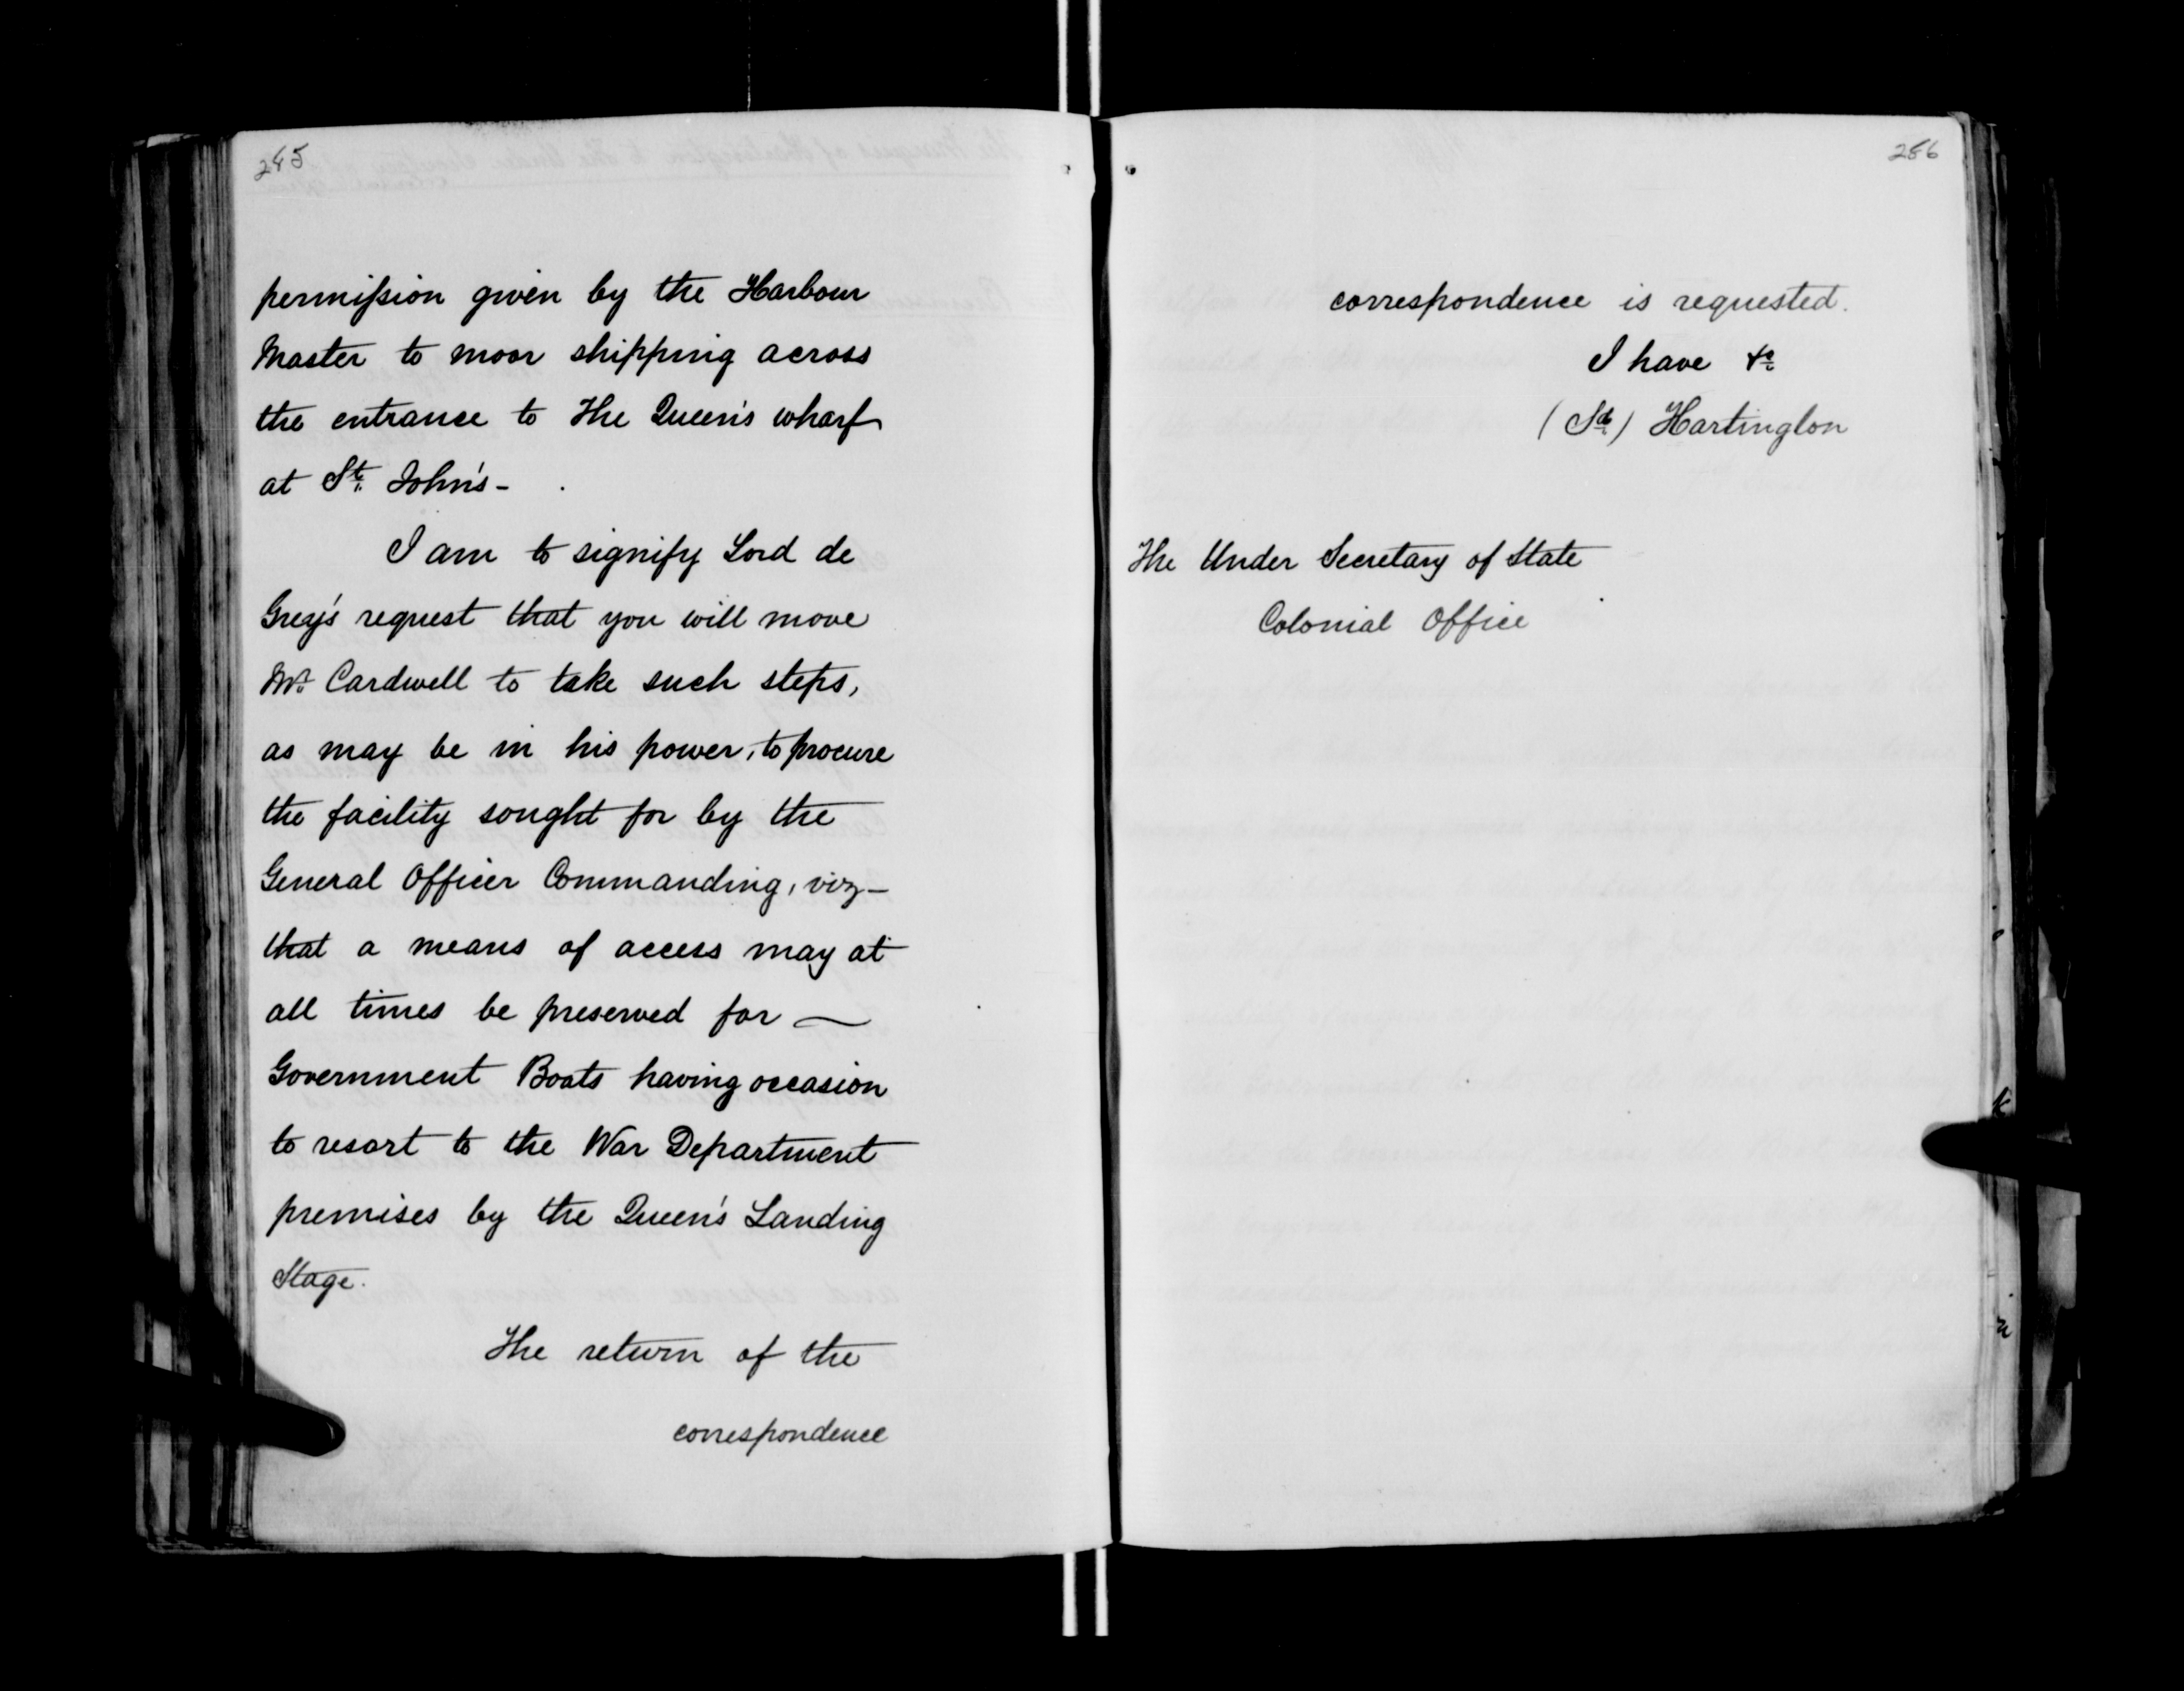 285
permiſsion given by the Harbour
Master to moor shipping across
the entrance to The Queen's wharf
at St. John's -
I am to signify Lord de
Grey's request that you will move
Mr. Cardwell to take such steps,
as may be in his power, to procure
the facility sought for by the
General Officer Commanding, viz -
that a means of access may at
all times be preserved for —
Government Boats having occasion
to resort to the War Department
premises by the Queen's Landing
Stage.
The return of the
correspondence
286
correspondence is requested.
I have &c
(Sd.) Hartington
The Under Secretary of State
Colonial Office